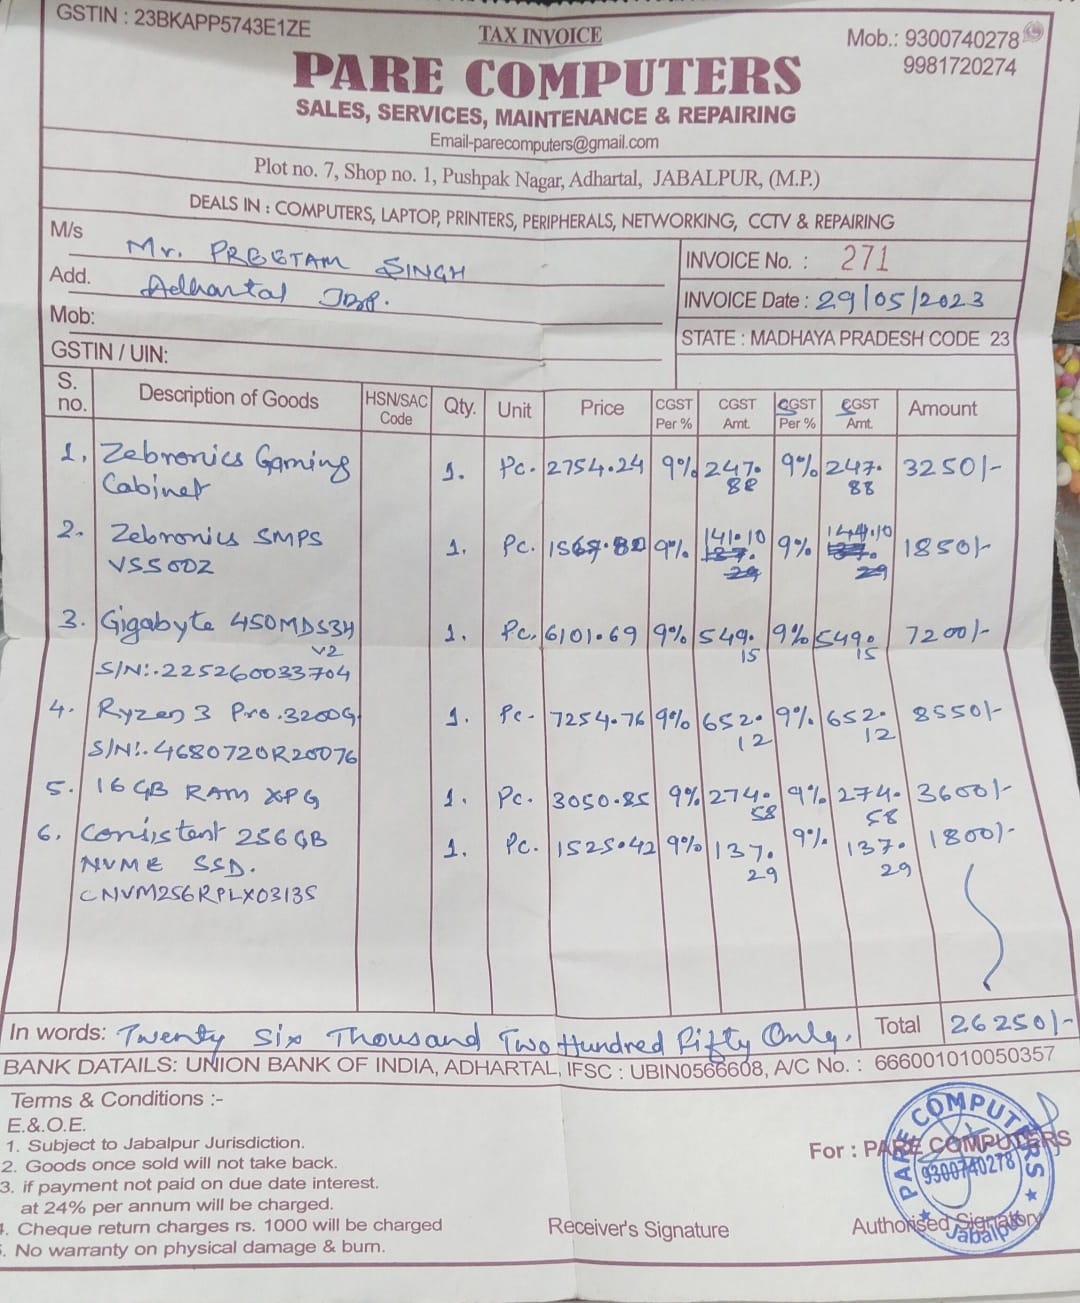 GSTIN : 23BKAPP5743E1ZE
TAX INVOICE
Mob.: 9300740278
9981720274
PARE COMPUTERS
SALES, SERVICES, MAINTENANCE & REPAIRING
Email-parecomputers@gmail.com
Plot no. 7, Shop no. 1, Pushpak Nagar, Adhartal, JABALPUR, (M.P.)
DEALS IN : COMPUTERS, LAPTOP, PRINTERS, PERIPHERALS, NETWORKING, CCTV & REPAIRING
M/s Mr. PREETAM SINGH
Add. Adhartal JBP.
Mob:
GSTIN / UIN:
INVOICE No. : 271
INVOICE Date : 29/05/2023
STATE : MADHAYA PRADESH CODE 23
S. no. Description of Goods HSN/SAC Code Qty. Unit Price CGST Per % CGST Amt. SGST Per % SGST Amt. Amount
1. Zebronics Gaming 1. Pc. 2754.24 9% 247. 9% 247. 3250/-
Cabinet 88 88
2. Zebronics SMPS 1. Pc. 9% 141.10 9% 1850/-
VS500Z
3. Gigabyte 450MDS3H 1. Pc. 6101.69 9% 549. 9% 549. 7200/-
V2 15 15
S/N:.225260033704
4. Ryzen 3 Pro.3200G 1. Pc- 7254.76 9% 652. 9% 652. 8550/-
12 12
S/N:.4680720R20076
5. 16 GB RAM XPG 1. Pc. 3050.85 9% 274. 9% 274. 3600/-
58 58
6. Consistent 256GB 1. Pc. 1525.42 9% 137. 9% 137. 1800/-
NVME SSD. 29 29
CNVM256RPLX03135
In words: Twenty Six Thousand Two Hundred Fifty Only. Total 26250/-
BANK DATAILS: UNION BANK OF INDIA, ADHARTAL, IFSC : UBIN0566608, A/C No. : 666001010050357
Terms & Conditions :-
E.&.O.E.
1. Subject to Jabalpur Jurisdiction.
2. Goods once sold will not take back.
3. if payment not paid on due date interest.
at 24% per annum will be charged.
4. Cheque return charges rs. 1000 will be charged
5. No warranty on physical damage & burn.
Receiver's Signature
For : PARE COMPUTERS
Authorised Signatory
PARE COMPUTERS
9300740278
Jabalpur